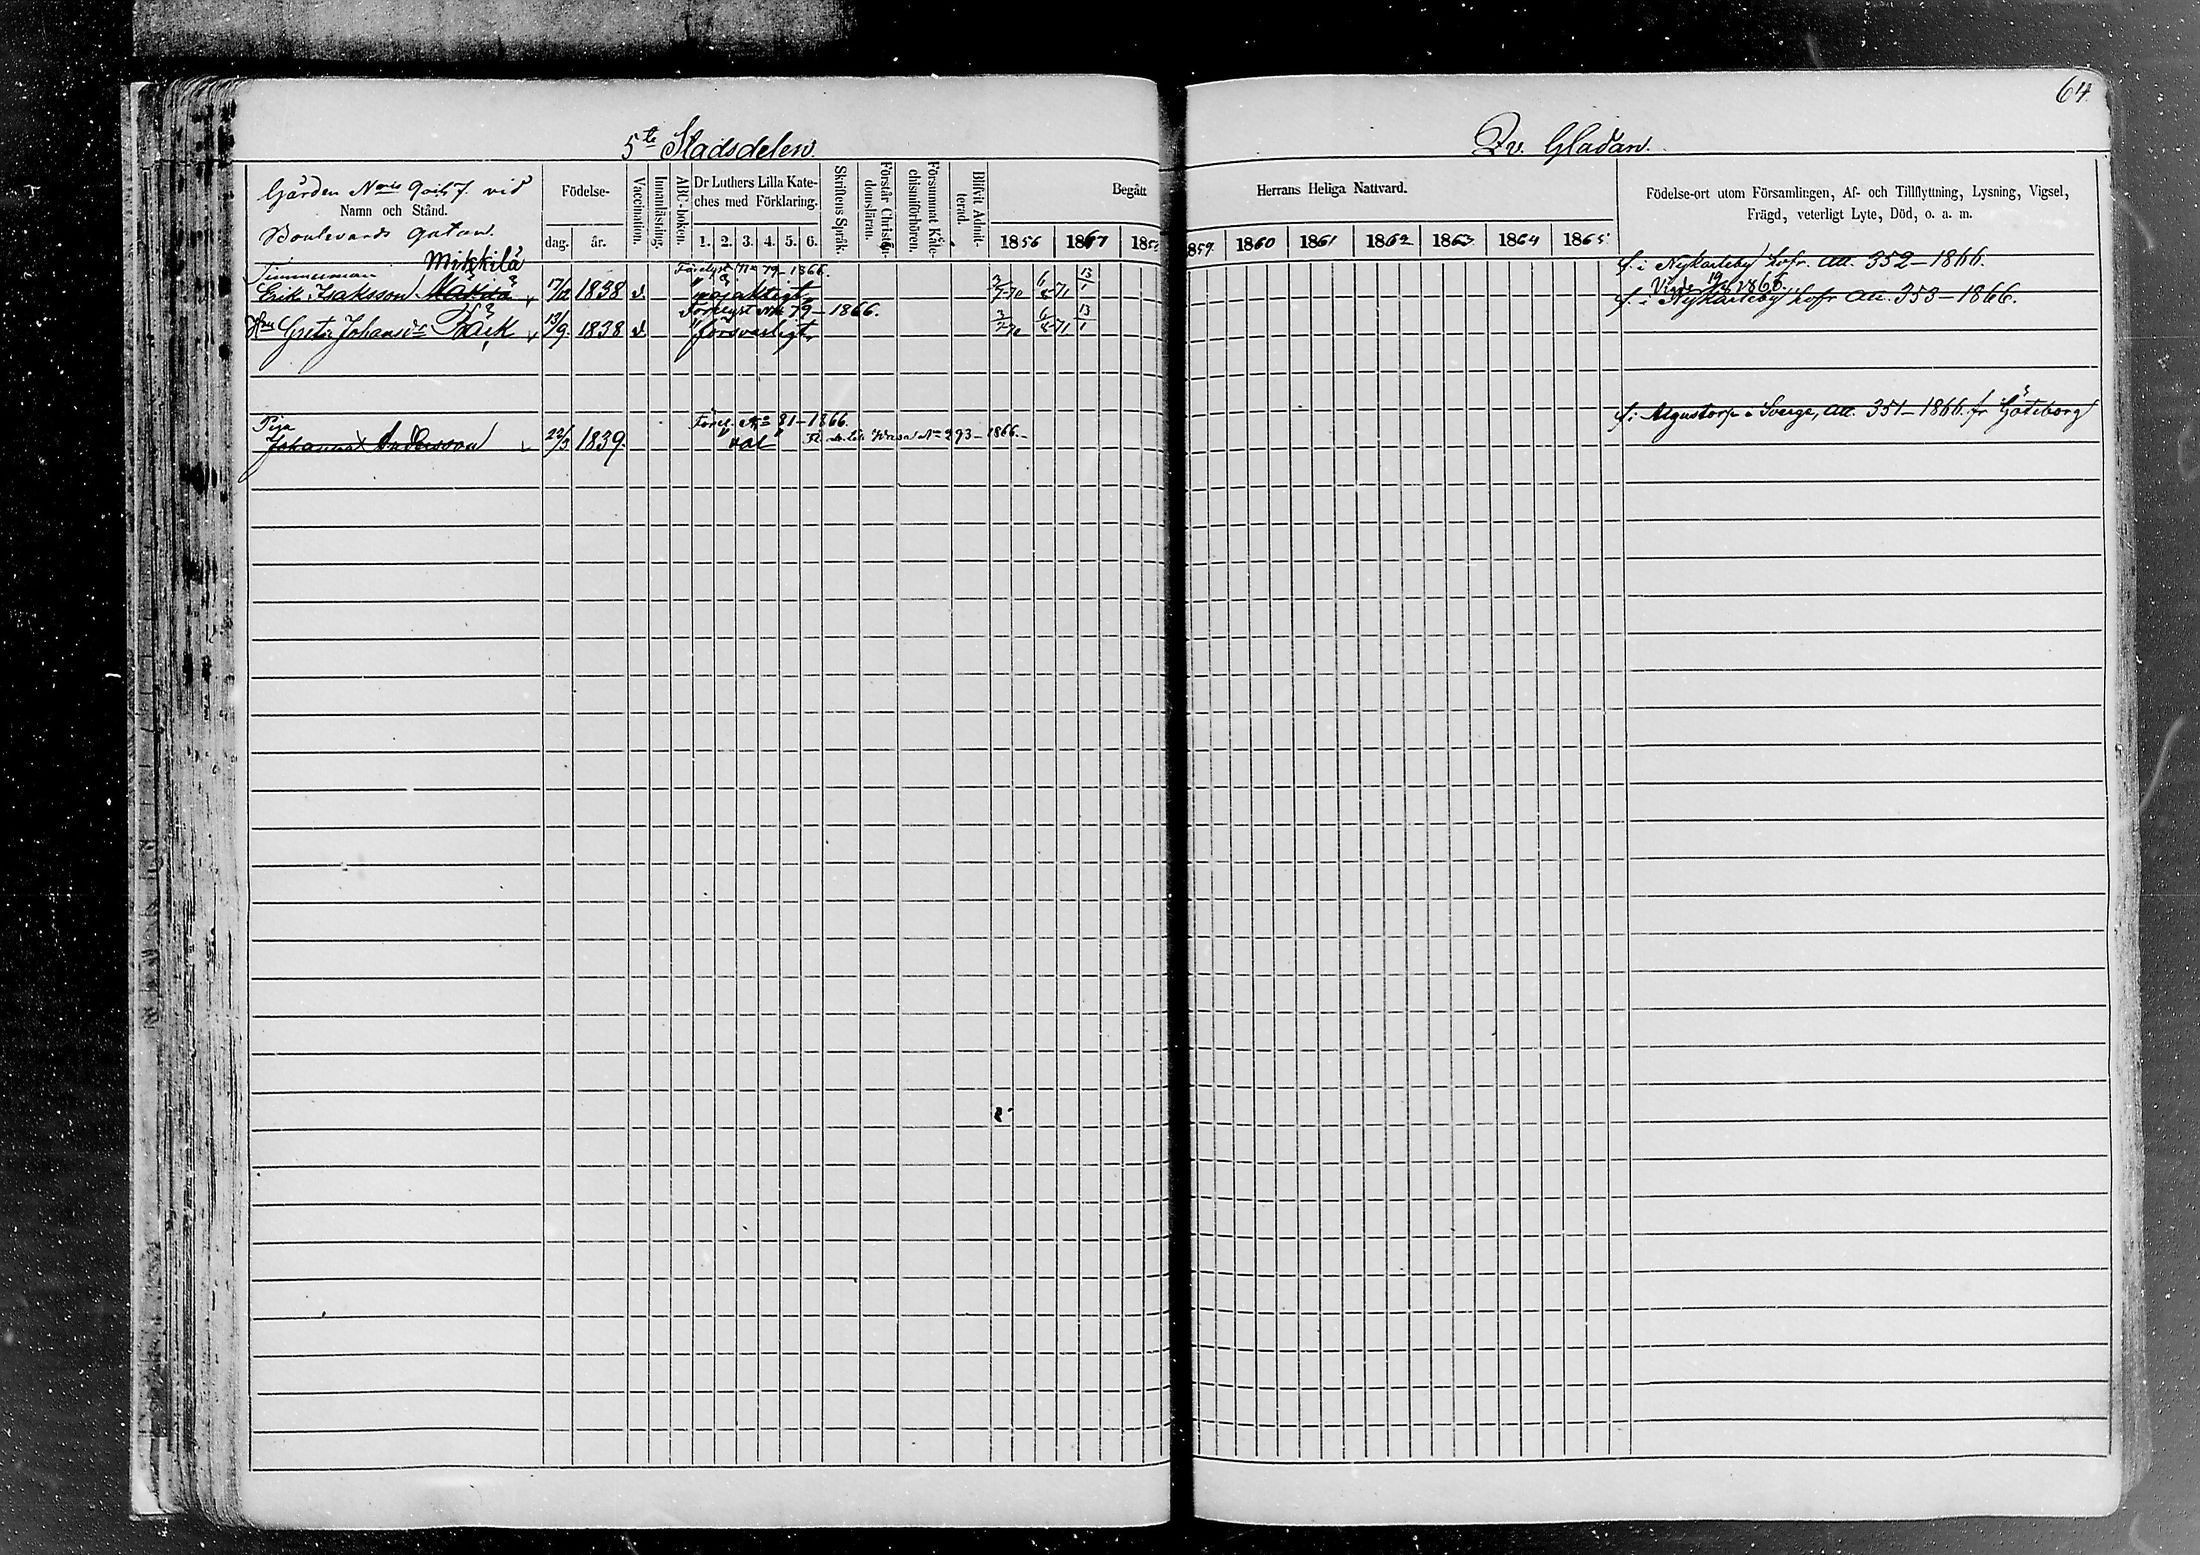 64
5te Stadsdelen.
Qv. Gladan.
Gården Nris 9 och 7. vid
Namn och Stånd.
Boulevards gatan.
Födelse-
dag. år.
Vaccination.
Innanläsning.
ABC-boken.
Dr Luthers Lilla Kate-
ches med Förklaring.
1. 2. 3. 4. 5. 6.
Skriftens Språk.
Förstår Christen-
domsläran.
Försummat Kate-
chismiförhören.
Blifvit Admit-
terad.
Begått
Herrans Heliga Nattvard.
1856 1867 185
859. 1860 1861 1862 1863 1864 1865
Födelse-ort utom Församlingen, Af- och Tillflyttning, Lysning, Vigsel,
Frägd, veterligt Lyte, Död, o. a. m.
Mikkilä
Timmerman Förelyst No 79-1866. f. i Nykarleby hofr. att. 352-1866.
Erik Isaksson 17/12 1838 v. nöjaktigt, 3/7-70 6/8-71 13/1 Vigde 19/8 1866.
Förelyst No 79-1866. f. i Nykarleby hofr att. 353-1866.
Hu Greta Johansdr Bäck 13/9. 1838 v försvarligt, 3/7-70 6/8-71 13/1
Piga Förel. No 81-1866. f. i Algustorp i Sverge, att. 351-1866. fr Göteborg
Johanna Andersson 22/3 1839. "väl" Wasa No 293-1866.-